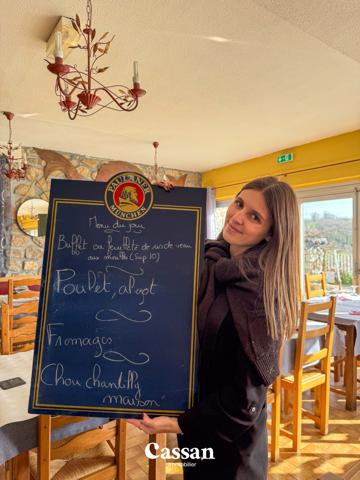 PAULANER
MÜNCHEN
Menu du jour
Buffet ou feuilleté de ris de veau
aux morilles (Sup 10)
Poulet, aligot
Fromages
Chou chantilly
maison
Cassan
immobilier